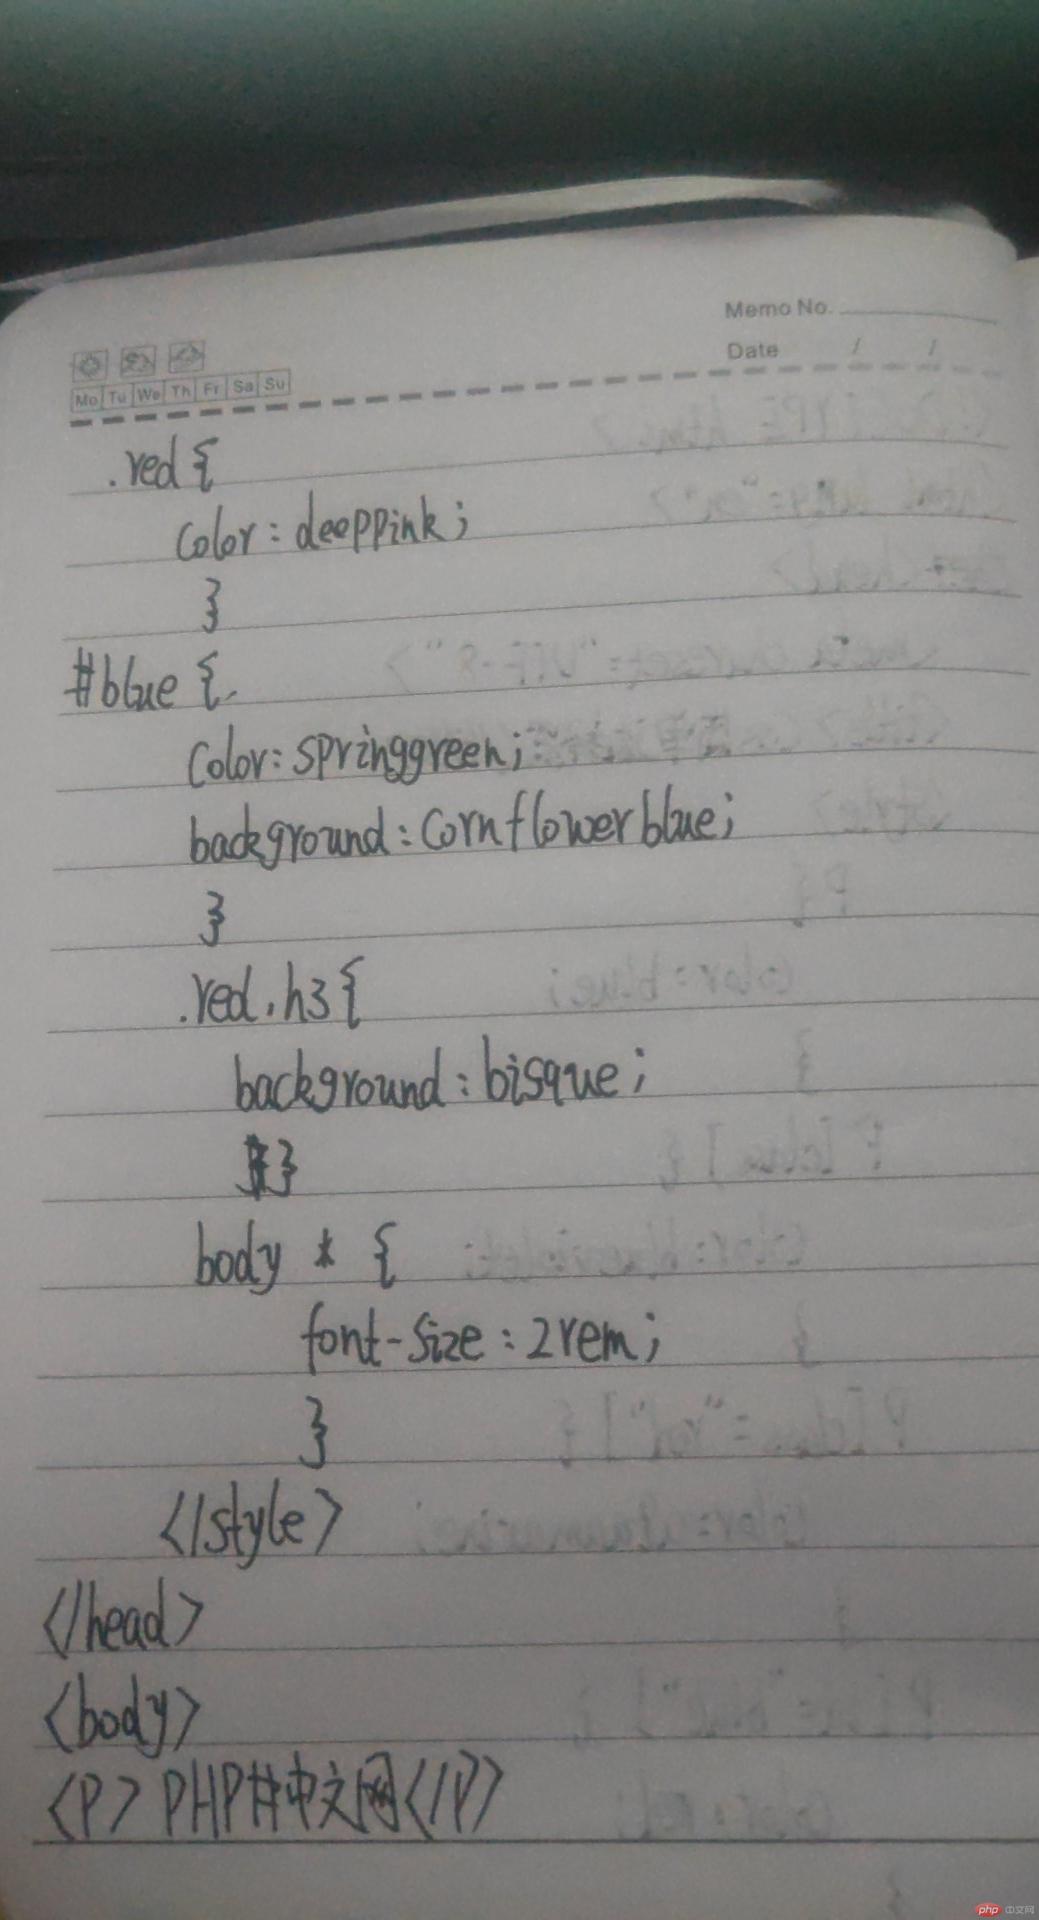 Memo No.
Date / /
Mo Tu We Th Fr Sa Su
.red {
color: deeppink;
}
#blue {
color: springgreen;
background: cornflowerblue;
}
.red, h3 {
background: bisque;
}
body * {
font-size: 2rem;
}
</style>
</head>
<body>
<P> PHP中文网</P>
php 中文网